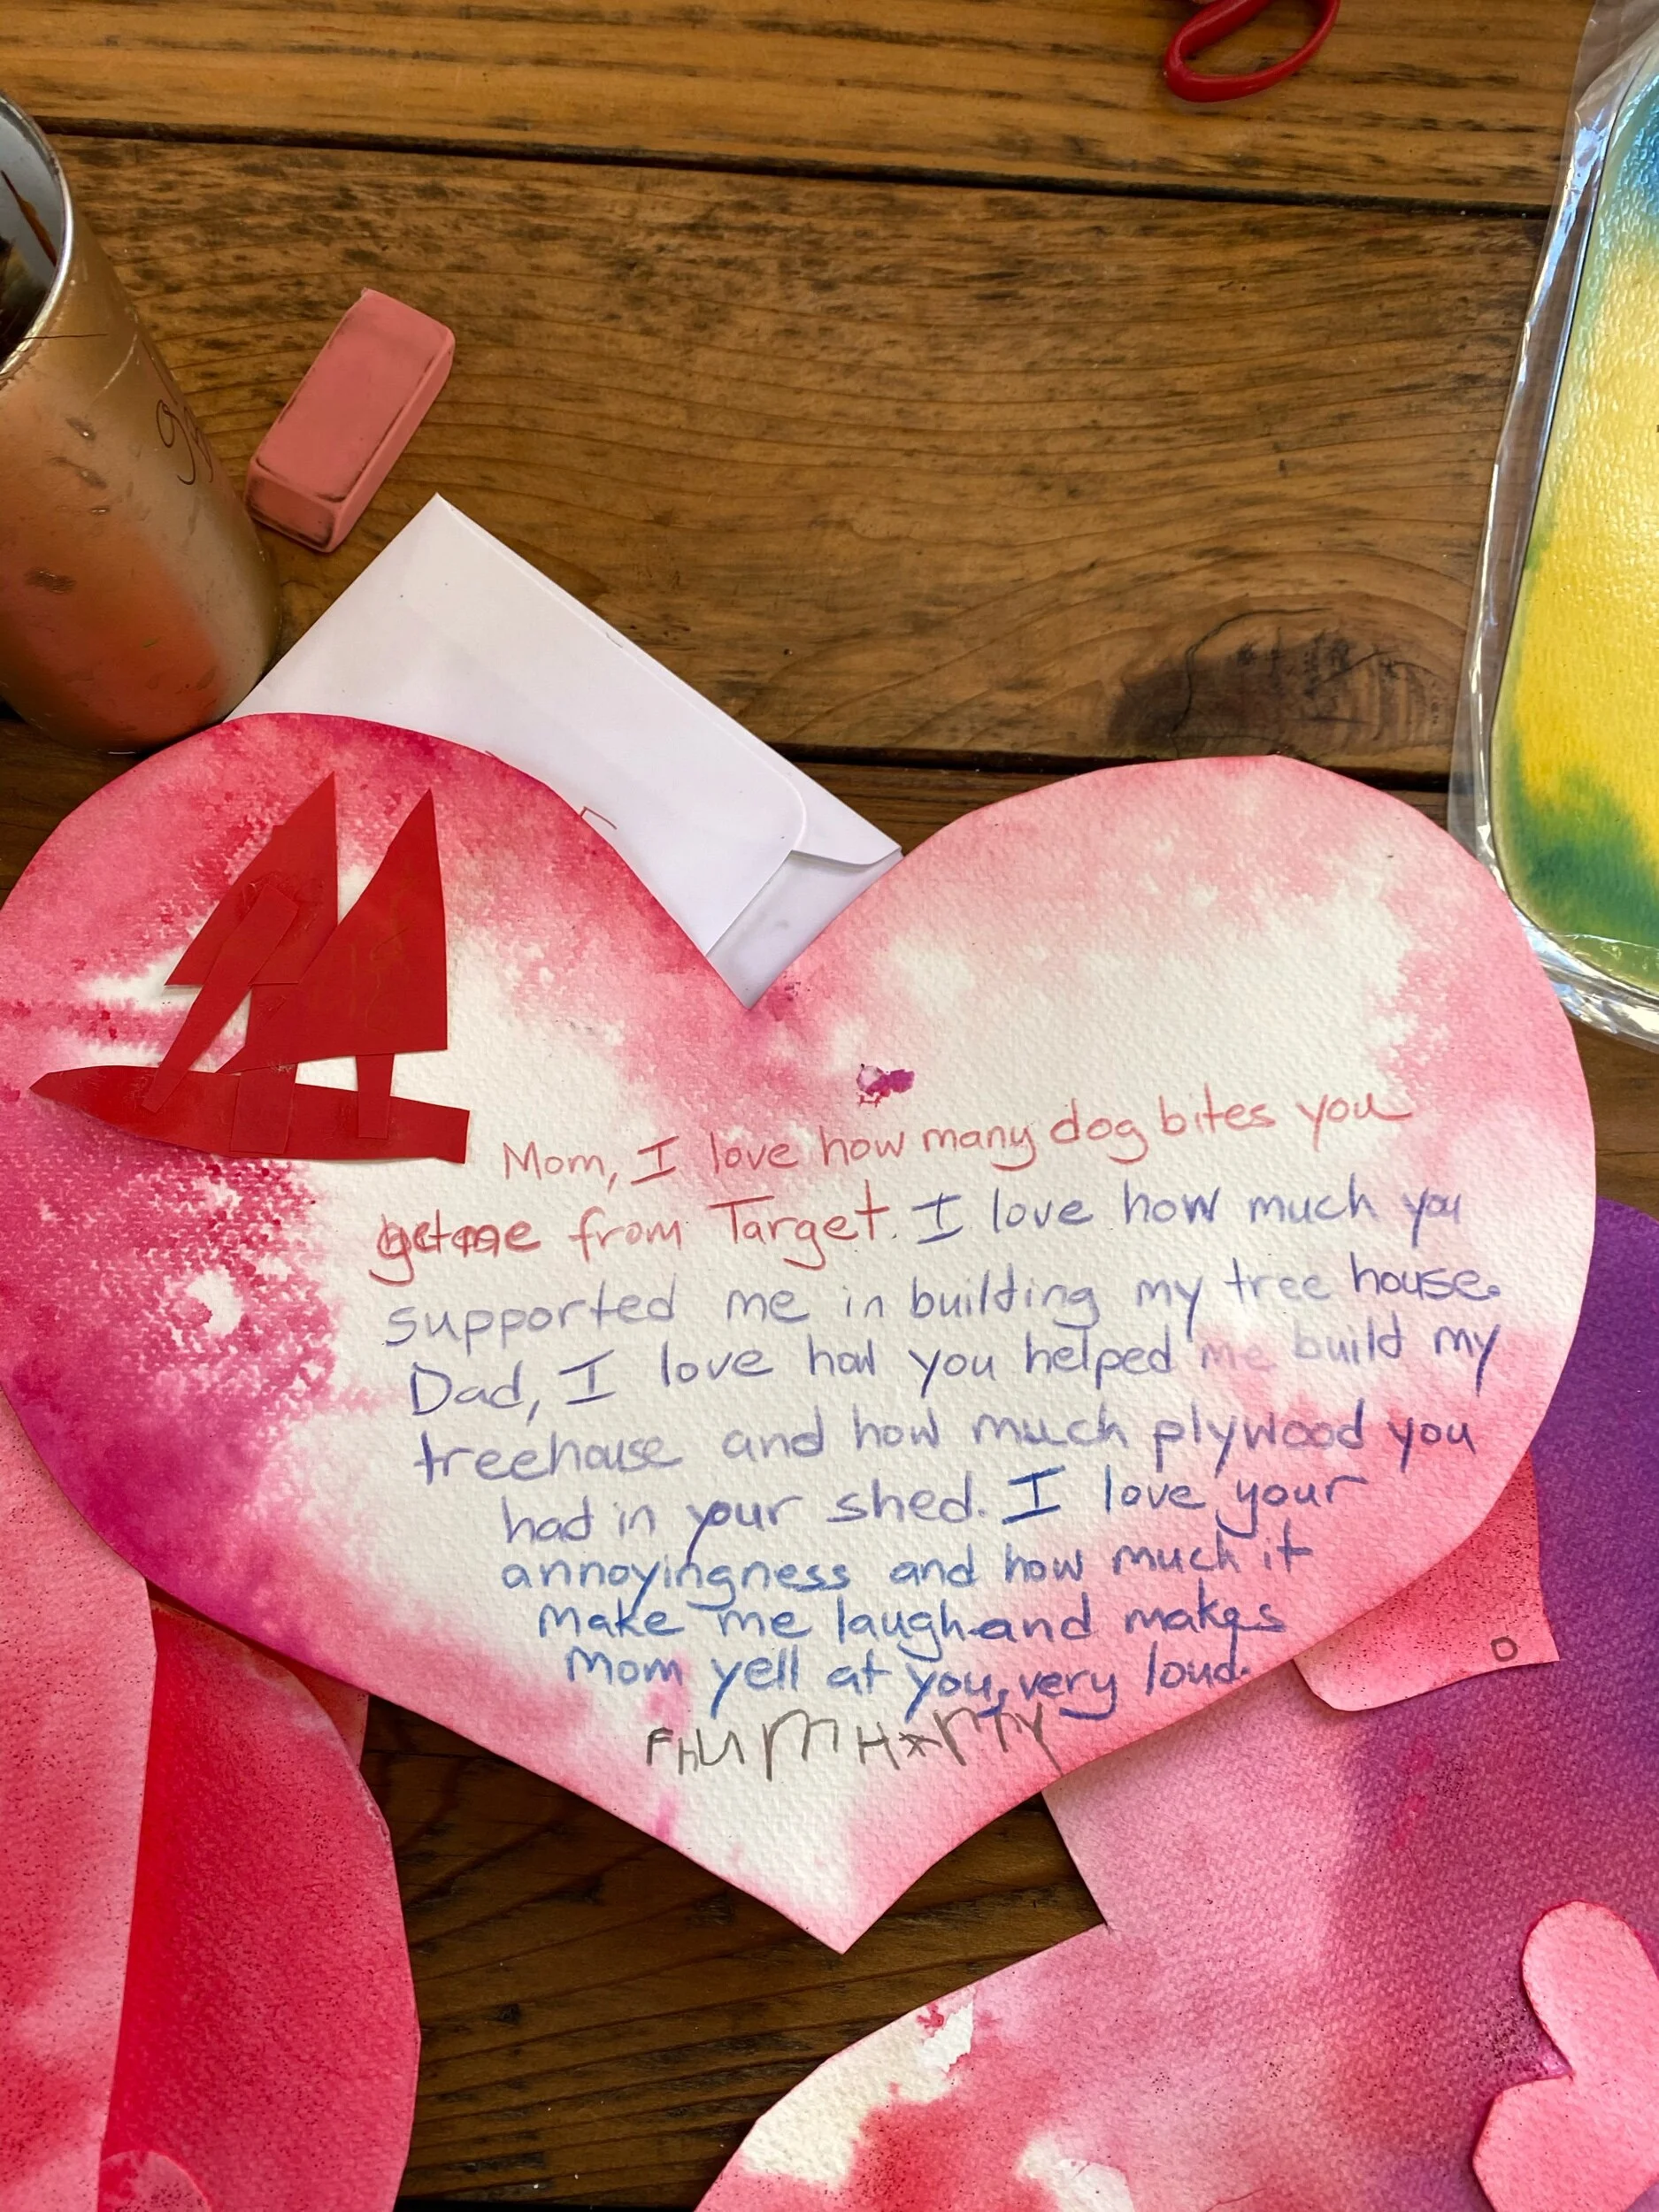 Mom, I love how many dog bites you
get me from Target. I love how much you
supported me in building my tree house.
Dad, I love how you helped me build my
treehouse and how much plywood you
had in your shed. I love your
annoyingness and how much it
make me laugh and makes
Mom yell at you, very loud.